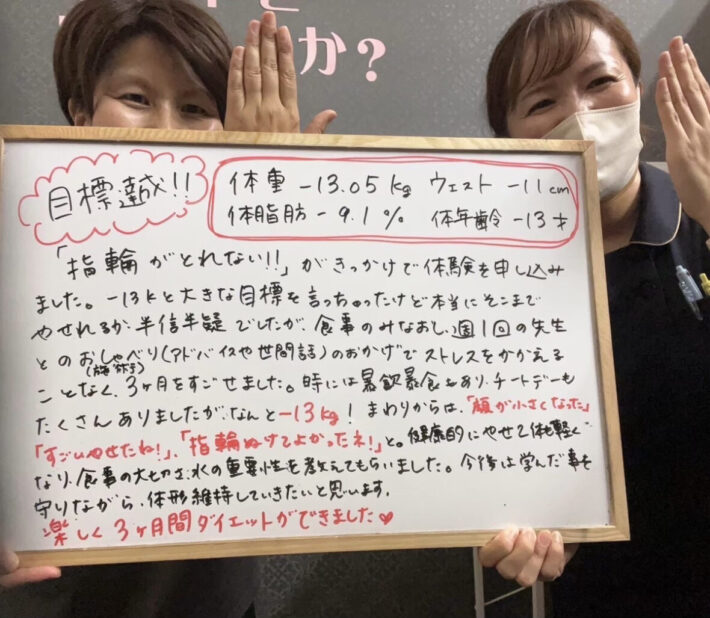 か?
目標達成!!
体重 -13.05kg ウエスト -11cm
体脂肪 -9.1% 体年齢 -13才
「指輪がとれない!!」がきっかけで体験を申し込み
ました。-13kと大きな目標を言っちゃったけど本当にそこまで
やせれるか半信半疑でしたが、食事のみなおし、週1回の先生
とのおしゃべり(アドバイスや世間話)のおかげでストレスをかかえる
(施術)
ことなく、3ヶ月をすごせました。時には暴飲暴食もあり、チートデーも
たくさんありましたが、なんと-13kg! まわりからは、「顔が小さくなった」
「すごいやせたね!」、「指輪ぬけてよかったネ!」と。健康的にやせて体も軽く
なり、食事の大切さ、水の重要性を教えてもらいました。今後は学んだ事を
守りながら、体形維持していきたいと思います。
楽しく3ヶ月間ダイエットができました♡